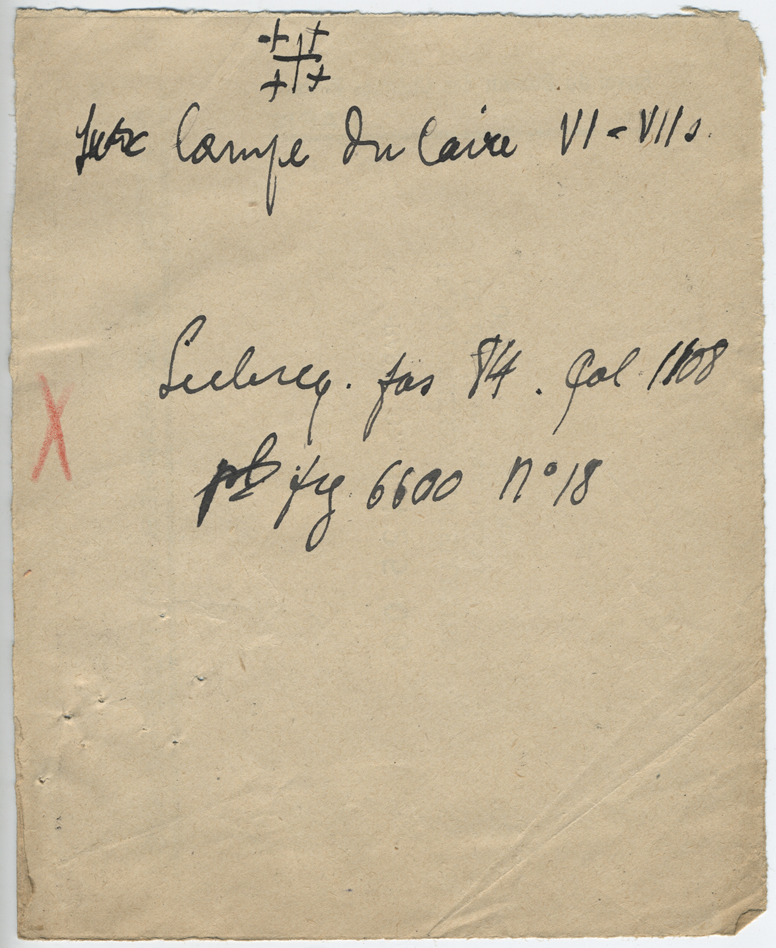 Lampe du Caire VI-VII s.
Leclercq. fas 84. Col 1108
fig 6600 N° 18